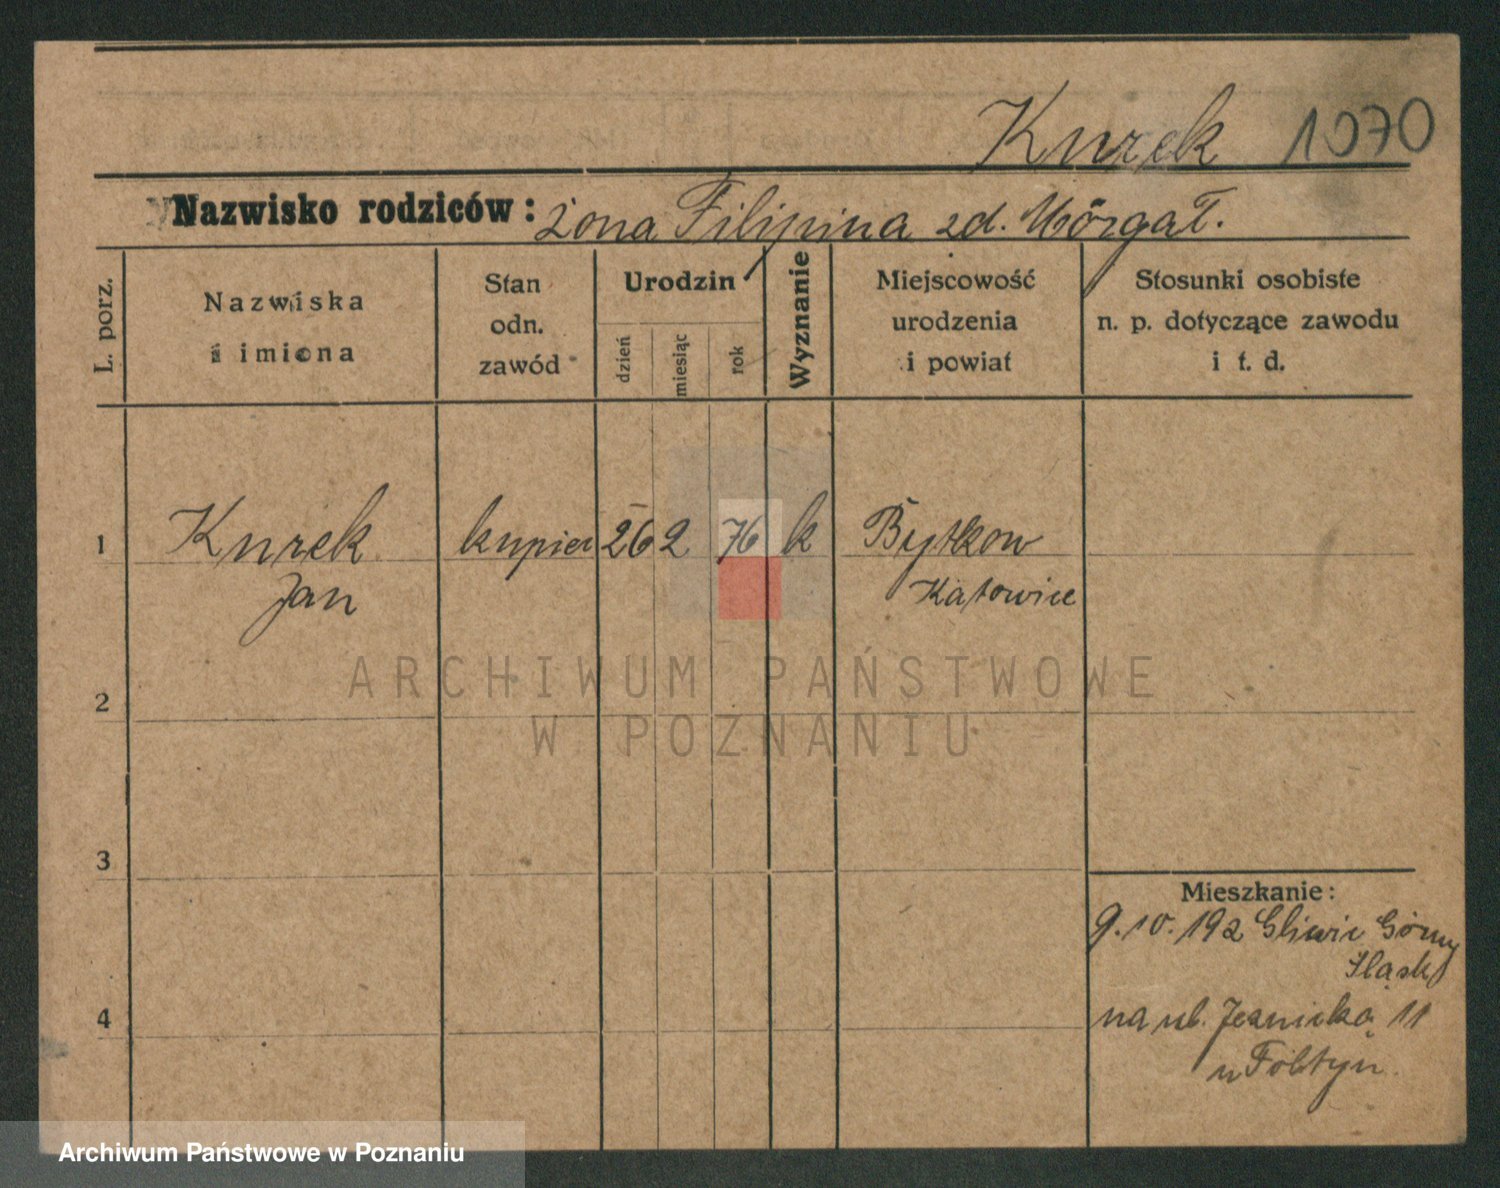 Kurek 1070
Nazwisko rodziców: żona Filipina zd. Mörgał.
L. porz.
Nazwiska
i imiona
Stan
odn.
zawód
Urodzin
dzień
miesiąc
rok
Wyznanie
Miejscowość
urodzenia
i powiat
Stosunki osobiste
n. p. dotyczące zawodu
i t. d.
1 Kurek kupiec 26 2 76 k Bytkow
Jan Katowice
ARCHIWUM PAŃSTWOWE
W POZNANIU
2
3
Mieszkanie:
9.10.192 Gliwic Górny
Śląsk
4 na ul. 11
u Foltyn.
Archiwum Państwowe w Poznaniu